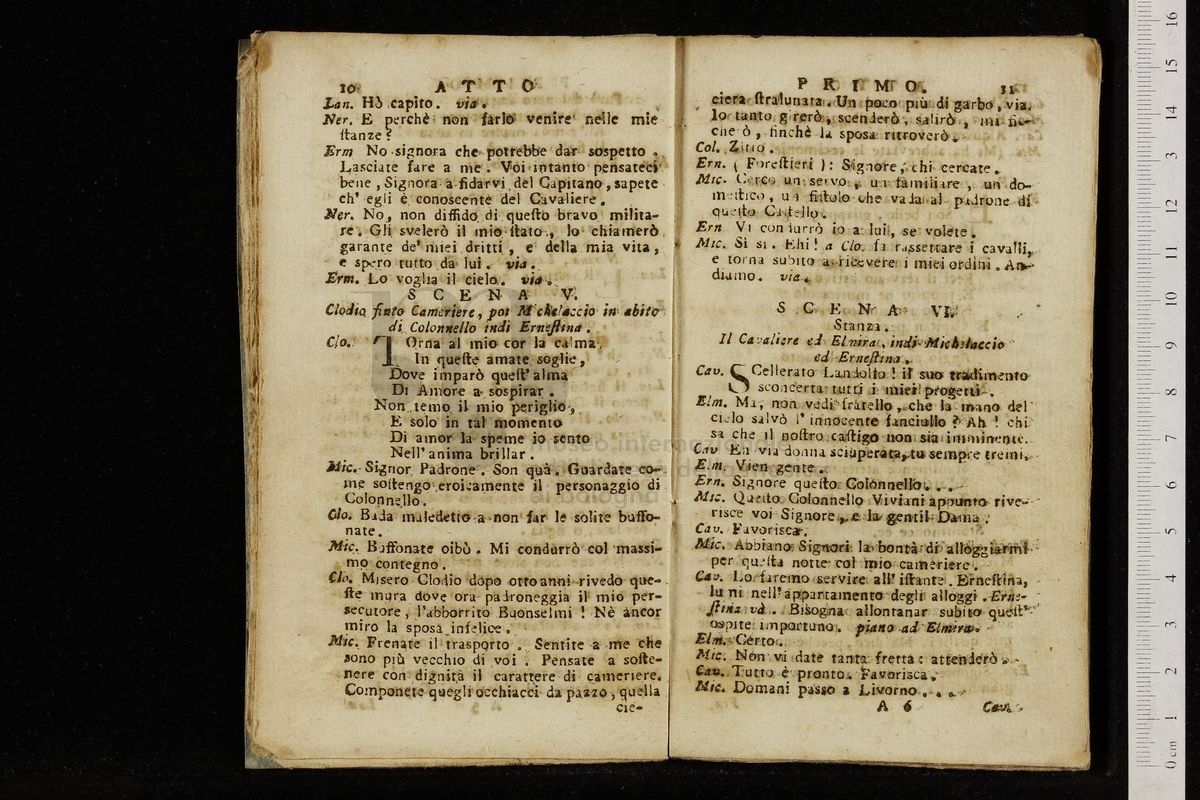 10 A T T O
Lan. Hò capito. via.
Ner. E perchè non farlo venire nelle mie
ſtanze?
Erm No signora che potrebbe dar sospetto.
Lasciate fare a me. Voi intanto pensateci
bene, Signora a fidarvi del Capitano, sapete
ch' egli è conoscente del Cavaliere.
Ner. No, non diffido di queſto bravo milita-
re. Gli svelerò il mio ſtato, lo chiamerò
garante de' miei dritti, e della mia vita,
e spero tutto da lui. via.
Erm. Lo voglia il cielo. via.
S C E N A V.
Clodio finto Cameriere, poi Michelaccio in abito
di Colonnello indi Erneſtina.
Clo. TOrna al mio cor la calma,
In queſte amate soglie,
Dove imparò queſt' alma
Di Amore a sospirar.
Non temo il mio periglio,
E solo in tal momento
Di amor la speme io sento
Nell' anima brillar.
Mic. Signor Padrone. Son quà. Guardate co-
me soſtengo eroicamente il personaggio di
Colonnello.
Clo. Bada maledetto a non far le solite buffo-
nate.
Mic. Buffonate oibò. Mi condurrò col massi-
mo contegno.
Clo. Misero Clodio dopo otto anni rivedo que-
ſte mura dove ora padroneggia il mio per-
secutore, l'abborrito Buonselmi! Nè ancor
miro la sposa infelice.
Mic. Frenate il trasporto. Sentite a me che
sono più vecchio di voi. Pensate a soſte-
nere con dignità il carattere di cameriere.
Componete quegli occhiacci da pazzo, quella
cie-
P R I M O. 11
ciera ſtralunata. Un poco più di garbo, via,
Io tanto girerò, scenderò, salirò, mi fic-
cherò, finchè la sposa ritroverò.
Col. Zitto.
Ern. (Foreſtieri): Signore, chi cercate.
Mic. Cerco un servo, un familiare, un do-
meſtico, un fiſtolo che vada al padrone di
queſto Caſtello.
Ern Vi condurrò io a lui, se volete.
Mic. Sì si. Ehi! a Clo. fa rassettare i cavalli,
e torna subito a ricevere i miei ordini. An-
diamo. via.
S C E N A VI.
Stanza.
Il Cavaliere ed Elmira, indi Michelaccio
ed Erneſtina.
Cav. SCellerato Landolfo! il suo tradimento
sconcerta tutti i miei progetti.
Elm. Ma, non vedi fratello, che la mano del
cielo salvò l' innocente fanciullo? Ah! chi
sa che il noſtro caſtigo non sia imminente.
Cav Eh via donna sciuperata, tu sempre tremi,
E.m. Vien gente.
Ern. Signore queſto Colonnello....
Mic. Queſto Colonnello Viviani appunto rive-
risce voi Signore, e la gentil Dama.
Cav. Favorisca.
Mic. Abbiano Signori la bontà di alloggiarmi
per queſta notte col mio cameriere.
Cav. Lo faremo servire all' iſtante. Erneſtina,
lumi nell' appartamento degli alloggi. Erne-
ſtina và. Bisogna allontanar subito queſt'
ospite importuno. piano ad Elmira.
Elm. Certo.
Mic. Non vi date tanta fretta: attenderò.
Cav. Tutto è pronto. Favorisca.
Mic. Domani passo a Livorno....
A 6 Cav.
museo internazionale
di Bologna
0 cm 1 2 3 4 5 6 7 8 9 10 11 12 13 14 15 16